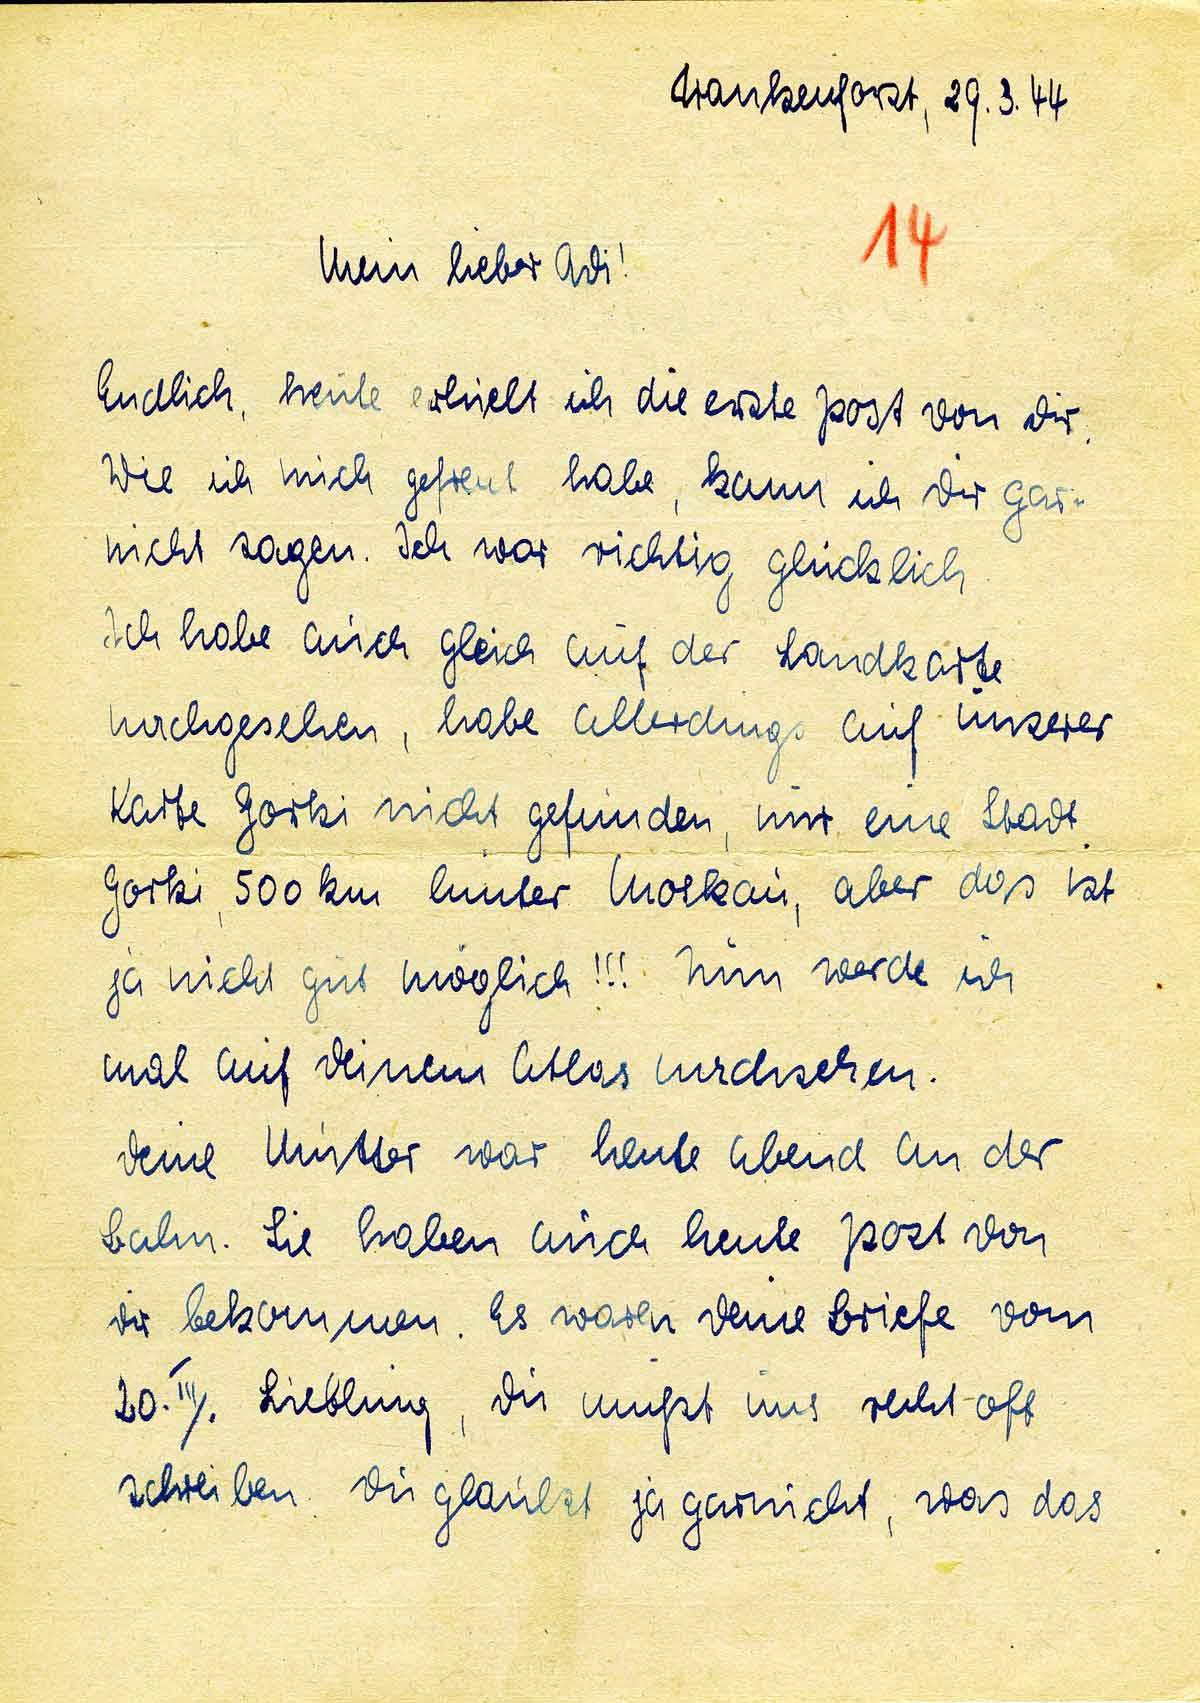 Frankenforst, 29.3.44
14
Mein lieber Adi!
Endlich, heute erhielt ich die erste Post von Dir.
Wie ich mich gefreut habe, kann ich Dir gar-
nicht sagen. Ich war richtig glücklich.
Ich habe auch gleich auf der Landkarte
nachgesehen, habe allerdings auf unserer
Karte Gorki nicht gefunden, nur eine Stadt
Gorki, 500 km hinter Moskau, aber das ist
ja nicht gut möglich!!! Nun werde ich
mal auf Deinem Atlas nachsehen.
Deine Mutter war heute abend an der
Bahn. Sie haben auch heute Post von
Dir bekommen. Es waren Deine Briefe vom
20. III. Liebling, Du mußt uns recht oft
schreiben. Du glaubst ja garnicht, was das